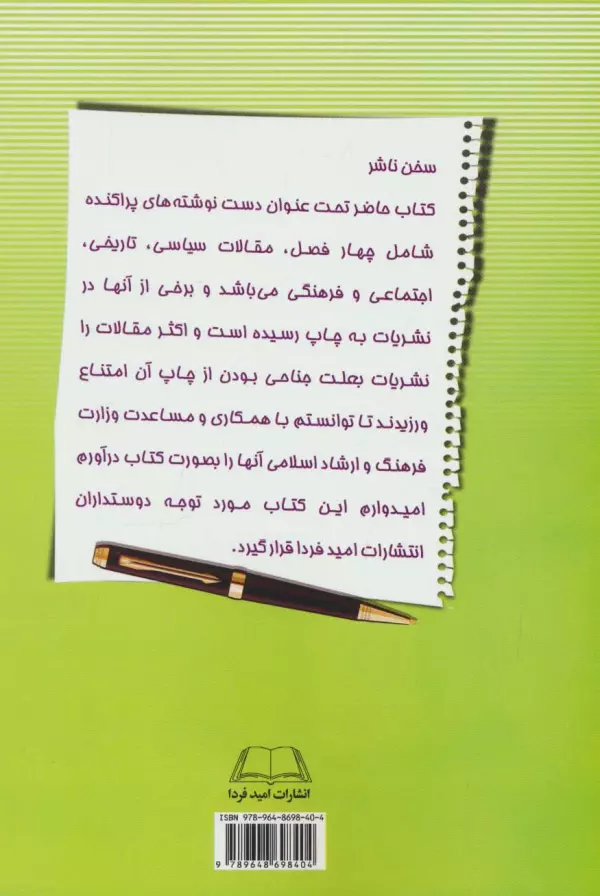 سخن ناشر
کتاب حاضر تحت عنوان دست نوشته‌های پراکنده
شامل چهار فصل، مقالات سیاسی، تاریخی،
اجتماعی و فرهنگی می‌باشد و برخی از آنها در
نشریات به چاپ رسیده است و اکثر مقالات را
نشریات بعلت جناحی بودن از چاپ آن امتناع
ورزیدند تا توانستم با همکاری و مساعدت وزارت
فرهنگ و ارشاد اسلامی آنها را بصورت کتاب درآورم
امیدوارم این کتاب مورد توجه دوستداران
انتشارات امید فردا قرار گیرد.
انشارات امید فردا
ISBN 978-964-8698-40-4
9 789648 698404